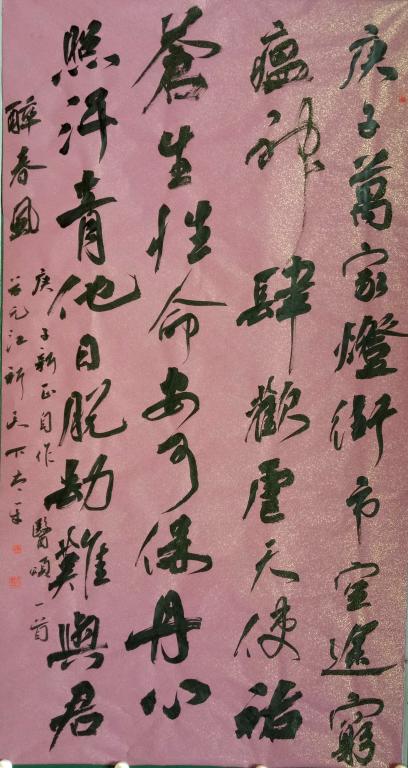 庚子萬家燈街市空途窮
瘟神肆歡虐天使祐
蒼生性命安可保丹心
照汗青他日脫劫難與君
醉春風
庚子新正自作醫頌一首
公元江新天下太平